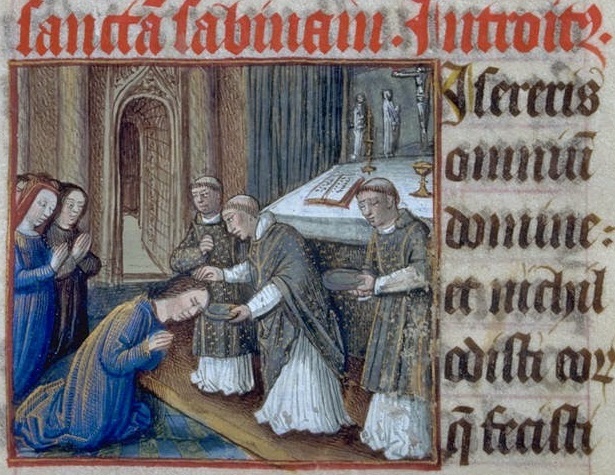 sanctā sabinam. Introitꝫ
Isereris
omniū
domine:
et nichil
odisti eoꝝ
q̄ fecisti